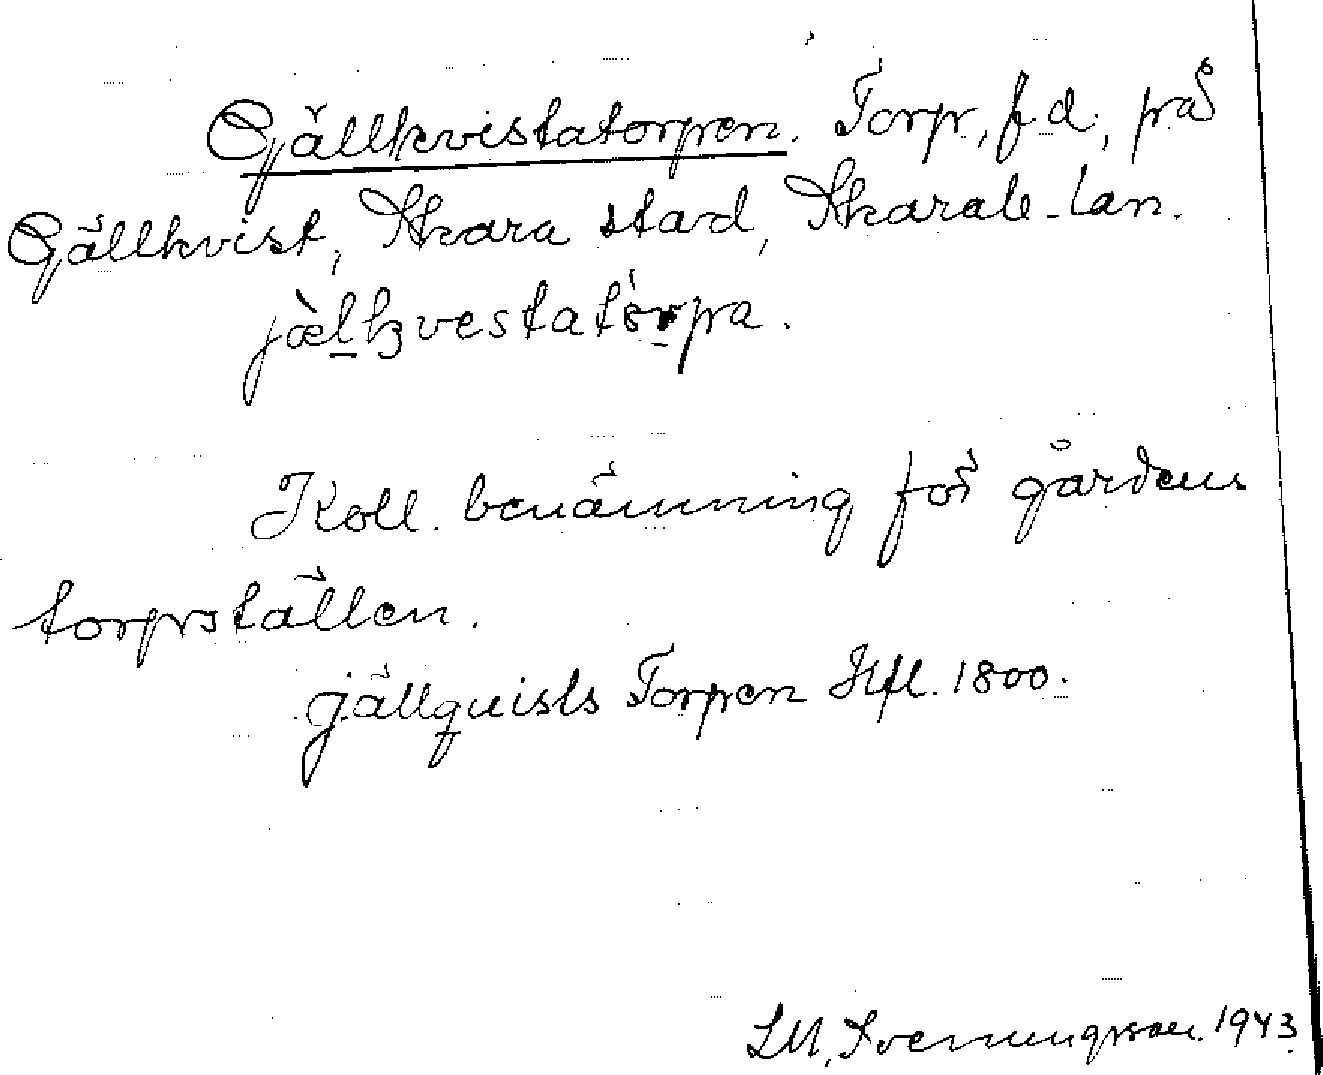 Gällkvistatorpen. Torp, f.d., på
Gällkvist, Skara stad, Skarab. län.
jæ̀lkvestatòrpa.
Koll. benämning för gårdens
torpställen.
Jällquists Torpen Hfl. 1800.
LM, Svenungsson. 1943